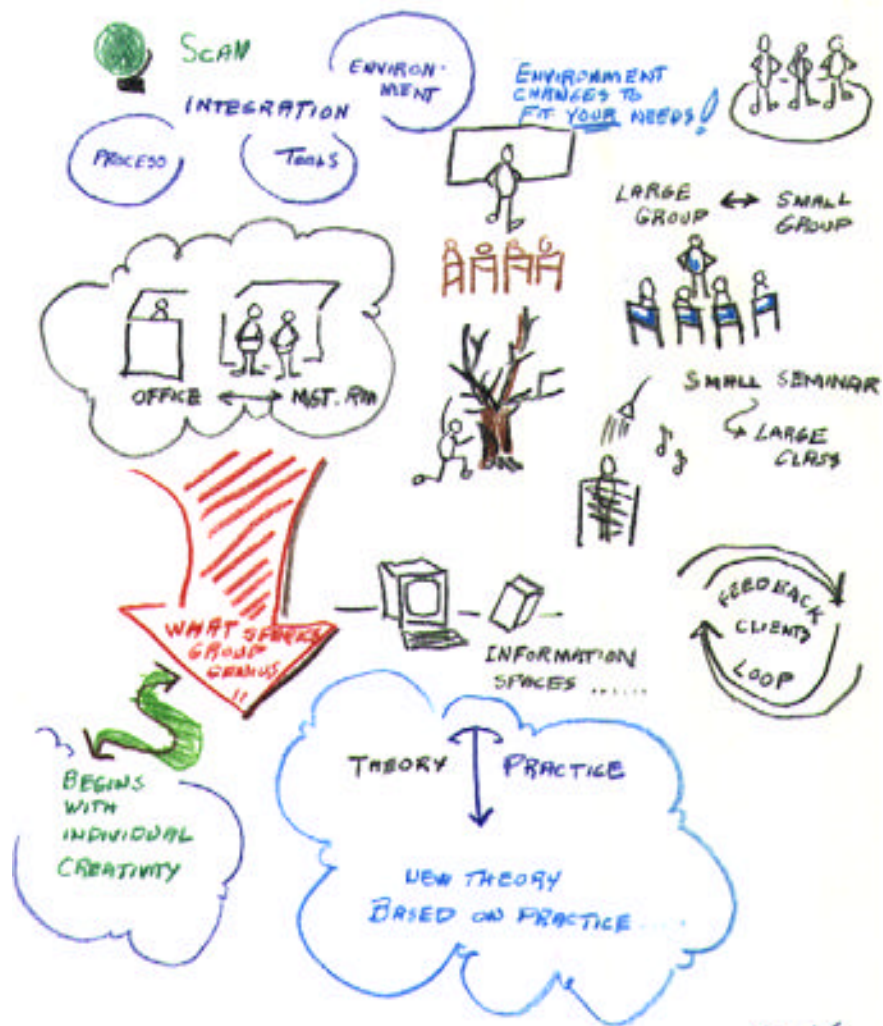 SCAN
ENVIRON-
MENT
INTEGRATION
PROCESS
TOOLS
ENVIRONMENT
CHANGES TO
FIT YOUR NEEDS!
LARGE
GROUP ↔ SMALL
GROUP
OFFICE ↔ MGT. RM
SMALL SEMINAR
LARGE
CLASS
WHAT SPARKS
GROUP
GENIUS
!!
INFORMATION
SPACES ......
FEEDBACK
CLIENTS
LOOP
BEGINS
WITH
INDIVIDUAL
CREATIVITY
THEORY PRACTICE
NEW THEORY
BASED ON PRACTICE....